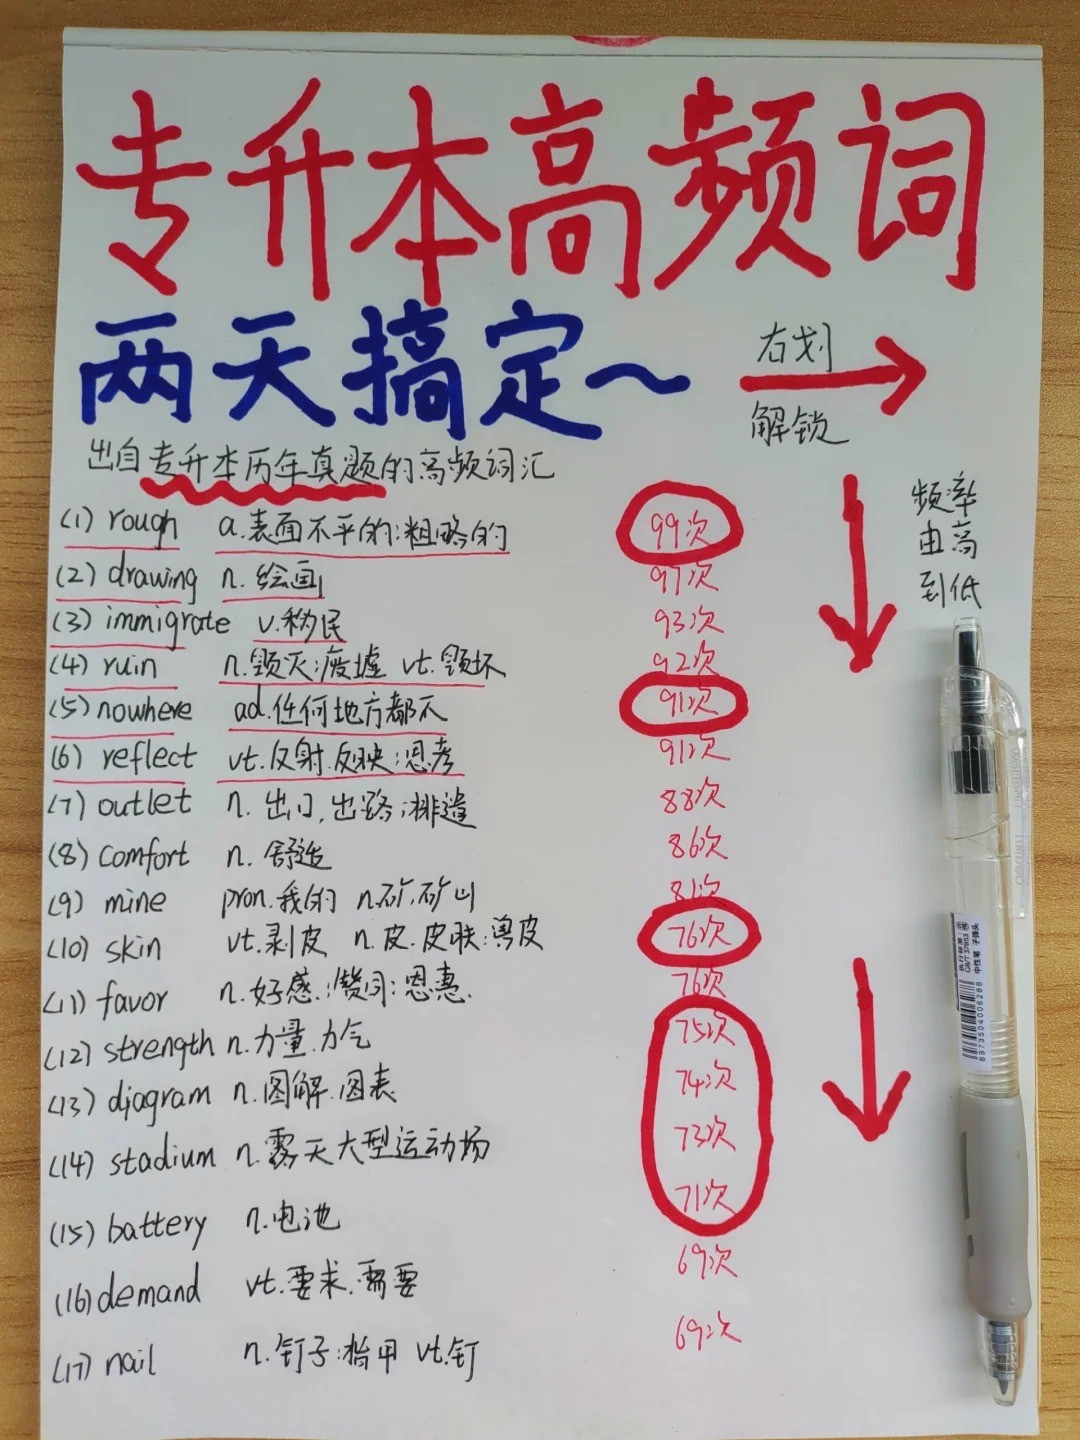 专升本高频词
两天搞定~
右划
解锁
出自专升本历年真题的高频词汇
频率
由高
到低
(1) rough a.表面不平的;粗略的 99次
(2) drawing n.绘画 97次
(3) immigrate v.移民 93次
(4) ruin n.毁灭;废墟 vt.毁坏 92次
(5) nowhere ad.任何地方都不 91次
(6) reflect vt.反射.反映;思考 91次
(7) outlet n.出口,出路;排遣 88次
(8) comfort n.舒适 86次
(9) mine pron.我的 n.矿,矿山 81次
(10) skin vt.剥皮 n.皮.皮肤;兽皮 76次
(11) favor n.好感;赞同;恩惠. 76次
(12) strength n.力量.力气 75次
(13) diagram n.图解.图表 74次
(14) stadium n.露天大型运动场 73次
(15) battery n.电池 71次
(16) demand vt.要求.需要 69次
(17) nail n.钉子;指甲 vt.钉 69次
执行标准:
GB/T 37853
中性笔 子弹头
6973504006288